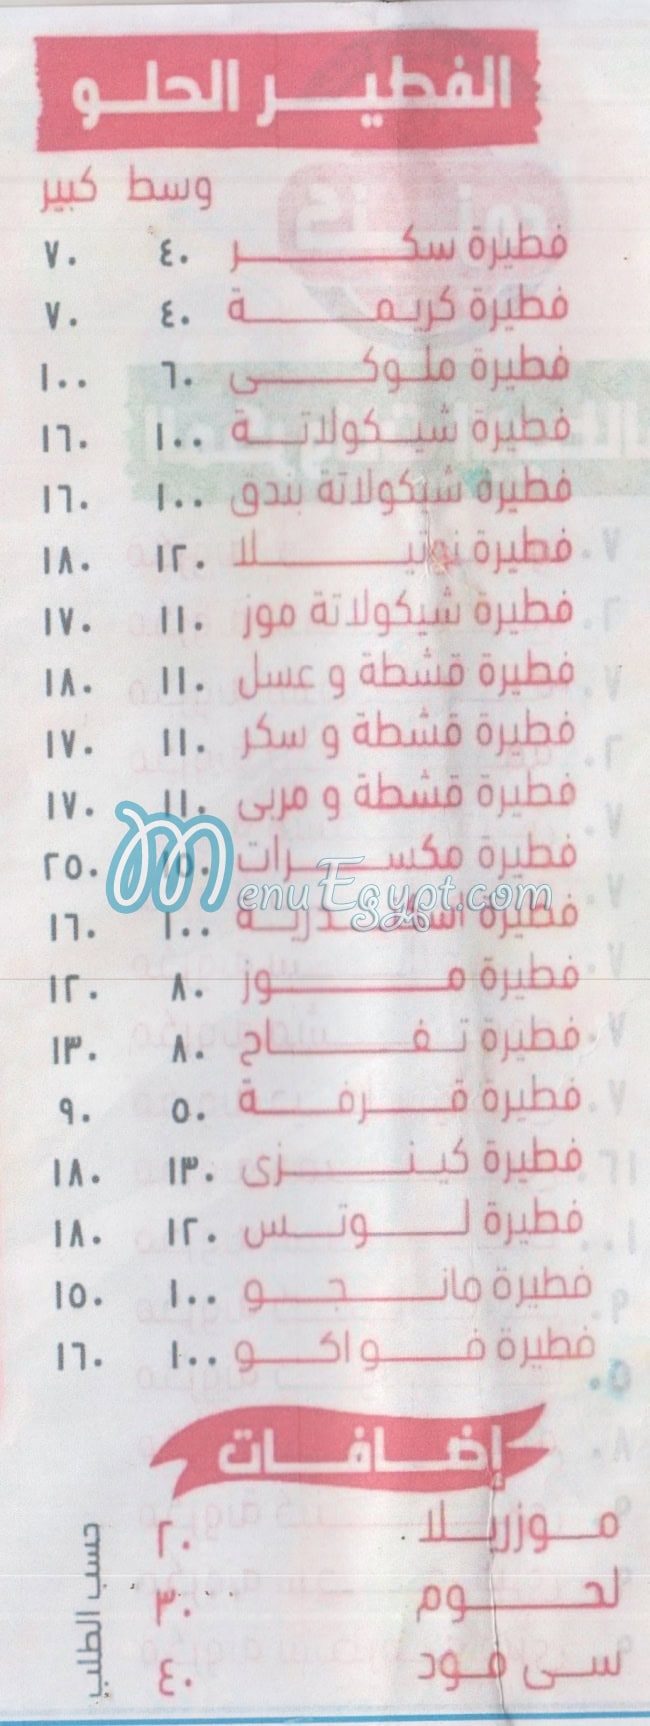 الفطير الحلو
وسط كبير
فطيرة سكر ٤٠ ٧٠
فطيرة كريمة ٤٠ ٧٠
فطيرة ملوكى ٦٠ ١٠٠
فطيرة شيكولاتة ١٠٠ ١٦٠
فطيرة شيكولاتة بندق ١٠٠ ١٦٠
فطيرة نوتيلا ١٢٠ ١٨٠
فطيرة شيكولاتة موز ١١٠ ١٧٠
فطيرة قشطة و عسل ١١٠ ١٨٠
فطيرة قشطة و سكر ١١٠ ١٧٠
فطيرة قشطة و مربى ١١٠ ١٧٠
فطيرة مكسرات ١٥٠ ٢٥٠
MenuEgypt.com
فطيرة اسكندرية ١٠٠ ١٦٠
فطيرة موز ٨٠ ١٢٠
فطيرة تفاح ٨٠ ١٣٠
فطيرة قرفة ٥٠ ٩٠
فطيرة كينزى ١٣٠ ١٨٠
فطيرة لوتس ١٢٠ ١٨٠
فطيرة مانجو ١٠٠ ١٥٠
فطيرة فواكو ١٠٠ ١٦٠
إضافات
موزريلا ٢٠
لحوم ٣٠
سى فود ٤٠
حسب الطلب